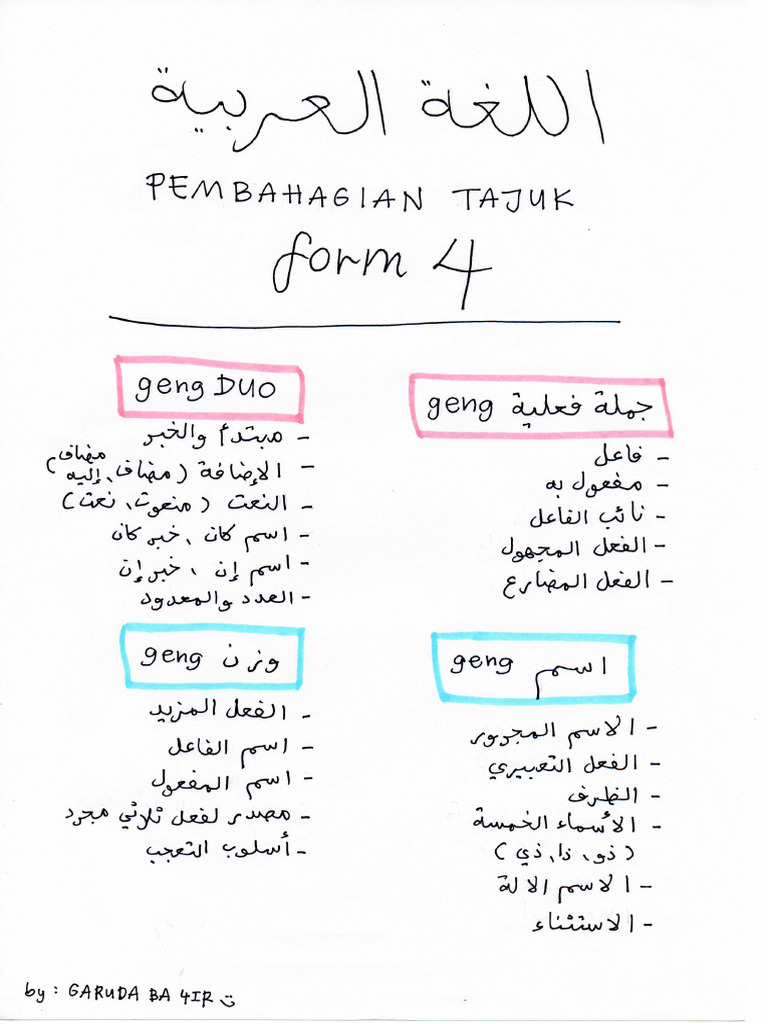 اللغة العربية
PEMBAHAGIAN TAJUK
form 4
geng DUO
- مبتدأ والخبر
- الإضافة (مضاف، مضاف إليه)
- النعت (منعوت، نعت)
- اسم كان، خبر كان
- اسم إن، خبر إن
- العدد والمعدود
geng جملة فعلية
- فاعل
- مفعول به
- نائب الفاعل
- الفعل المجهول
- الفعل المضارع
geng وزن
- الفعل المزيد
- اسم الفاعل
- اسم المفعول
- مصدر لفعل ثلاثي مجرد
- أسلوب التعجب
geng اسم
- الاسم المجرور
- الفعل التعبيري
- الظرف
- الأسماء الخمسة
(ذو، ذا، ذي)
- الاسم الالة
- الاستثناء
by : GARUDA BA 4IR